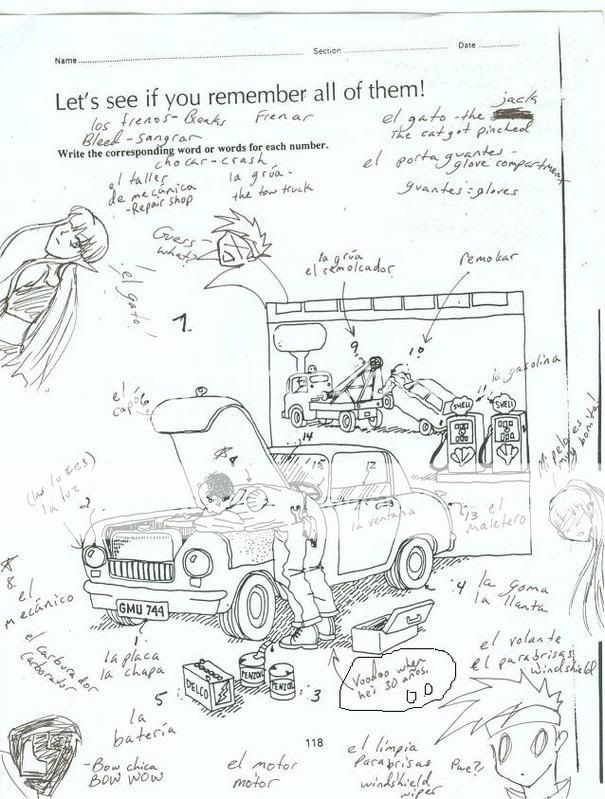 Name
Section
Date
Let's see if you remember all of them!
los frenos - Breaks Frenar
Bleed - sangrar
el gato - the jack
the cat got pinched
Write the corresponding word or words for each number.
chocar - crash
el porta guantes -
glove compartment
guantes = gloves
el taller
de mecánica
- Repair shop
la grúa -
the tow truck
Guess
what?
¡el gato!
la grúa
el remolcador
remolcar
7.
9
10
la gasolina
11
SHELL
SHELL
el
capó
6
14
15
12
Mi pelo es
muy bonita!
(las luces)
la luz
2
la ventana
13 el
maletero
8.
el
mecánico
GMU 744
4 la goma
la llanta
1.
la placa
la chapa
el carburador
carborator
el volante
el parabrisas
windshield
Voodoo when
he's 30 años.
DELCO
PENZOIL
PENZOIL
5
3
la
batería
118
- Bow chica
BOW WOW
el motor
motor
el limpia
parabrisas
windshield
wiper